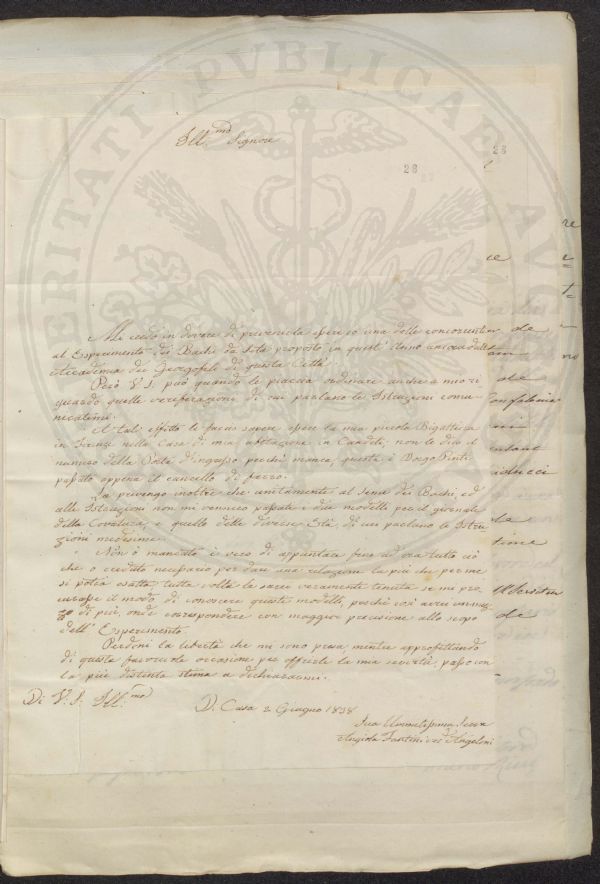 Ill.mo Signore
28
28
Mi credo in dovere di prevenirla essere io una delle concorrenti
al Esperimento dei Bachi da Seta proposto in quest' Anno ancora dall'
Accademia dei Georgofili di questa Città
Però V. S. può quando le piaccia ordinare anche a mio ri
guardo quelle verificazioni di cui parlano le Istruzioni comu
nicatemi.
A tal' effetto le faccio sapere essere la mia piccola Bigattiera
in Firenze nella Casa di mia abitazione in Candeli, non le dico il
numero della Porta d'ingresso perchè manca, questa è Borgo Pinti
passato appena il cancello di ferro.
La prevengo inoltre che unitamente al Seme dei Bachi, ed
alle Istruzioni non mi vennero passati i due modelli per il giornale
della Covatura, e quello delle diverse Età, di cui parlano le Istru
zioni medesime.
Non ò mancato è vero di appuntare fino ad ora tutto ciò
che ò creduto necessario per dare una relazione la più che per me
si potrà esatta tutta volta le sarei veramente tenuta se mi pro
curasse il modo di conoscere questi modelli, perchè così avrei un mez
zo di più, onde corrispondere con maggior precisione allo scopo
dell' Esperimento.
Perdoni la libertà che mi sono presa mentre approfittando
di questa favorevole occasione per offrirle la mia servitù, passo con
la più distinta stima a dichiararmi.
Di V. S. Ill.mo
D. Casa 2 Giugno 1838
Sua Umilissima Serva
Angiola Fantini Angeloni